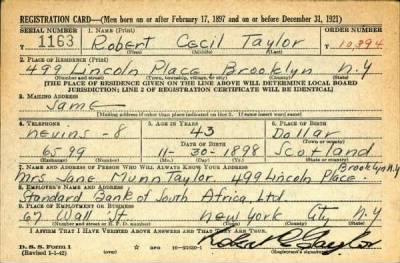 REGISTRATION CARD—(Men born on or after February 17, 1897 and on or before December 31, 1921)
SERIAL NUMBER 1. NAME (Print) ORDER NUMBER
1163 Robert Cecil Taylor 10,894
2. PLACE OF RESIDENCE (Print)
499 Lincoln Place Brooklyn N.Y
(Number and street) (Town, township, village, or city) (County) (State)
[THE PLACE OF RESIDENCE GIVEN ON THE LINE ABOVE WILL DETERMINE LOCAL BOARD
JURISDICTION; LINE 2 OF REGISTRATION CERTIFICATE WILL BE IDENTICAL]
3. MAILING ADDRESS
Same
[Mailing address if other than place indicated on line 2. If same insert word same]
4. TELEPHONE 5. AGE IN YEARS 6. PLACE OF BIRTH
Nevins-8 43 Dollar
DATE OF BIRTH
6599 11-30-1898 Scotland
7. NAME AND ADDRESS OF PERSON WHO WILL ALWAYS KNOW YOUR ADDRESS
Brooklyn N.Y
Mrs Jane Munn Taylor 499 Lincoln Place
8. EMPLOYER'S NAME AND ADDRESS
Standard Bank of South Africa, Ltd.
9. PLACE OF EMPLOYMENT OR BUSINESS
67 Wall St. New York City N.Y
(Number and street or R. F. D. number) (Town) (County) (State)
I AFFIRM THAT I HAVE VERIFIED ABOVE ANSWERS AND THAT THEY ARE TRUE.
Robert C Taylor
D. S. S. Form 1
(Revised 1-1-42) (over)
(Registrant's signature)